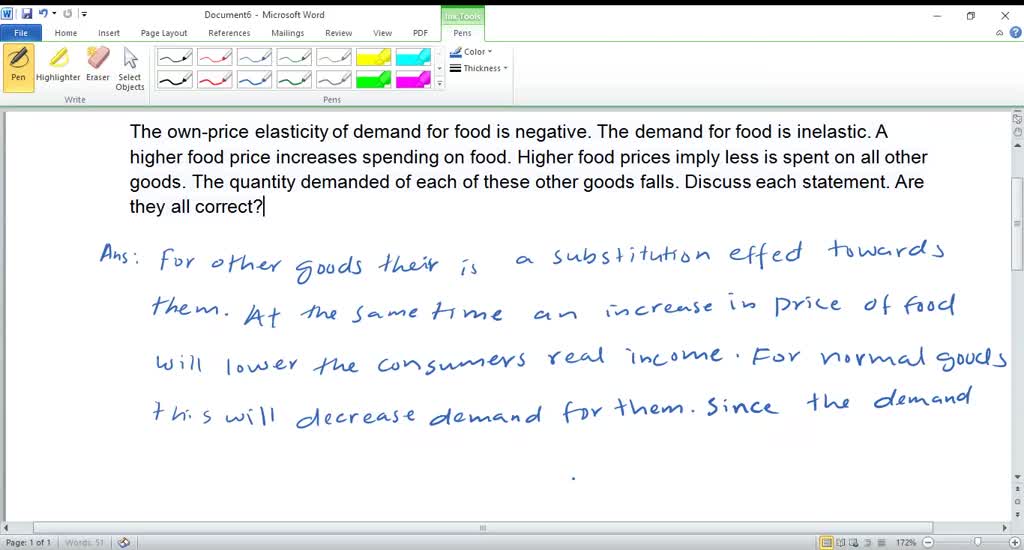 Document6 - Microsoft Word
Ink Tools
File Home Insert Page Layout References Mailings Review View PDF Pens
Pen Highlighter Eraser Select Objects
Color
Thickness
Write Pens
The own-price elasticity of demand for food is negative. The demand for food is inelastic. A
higher food price increases spending on food. Higher food prices imply less is spent on all other
goods. The quantity demanded of each of these other goods falls. Discuss each statement. Are
they all correct?
Ans: For other goods their is a substitution effed towards
them. At the same time an increase in price of food
will lower the consumers real income. For normal goods
this will decrease demand for them. Since the demand
Page: 1 of 1 Words: 51 172%